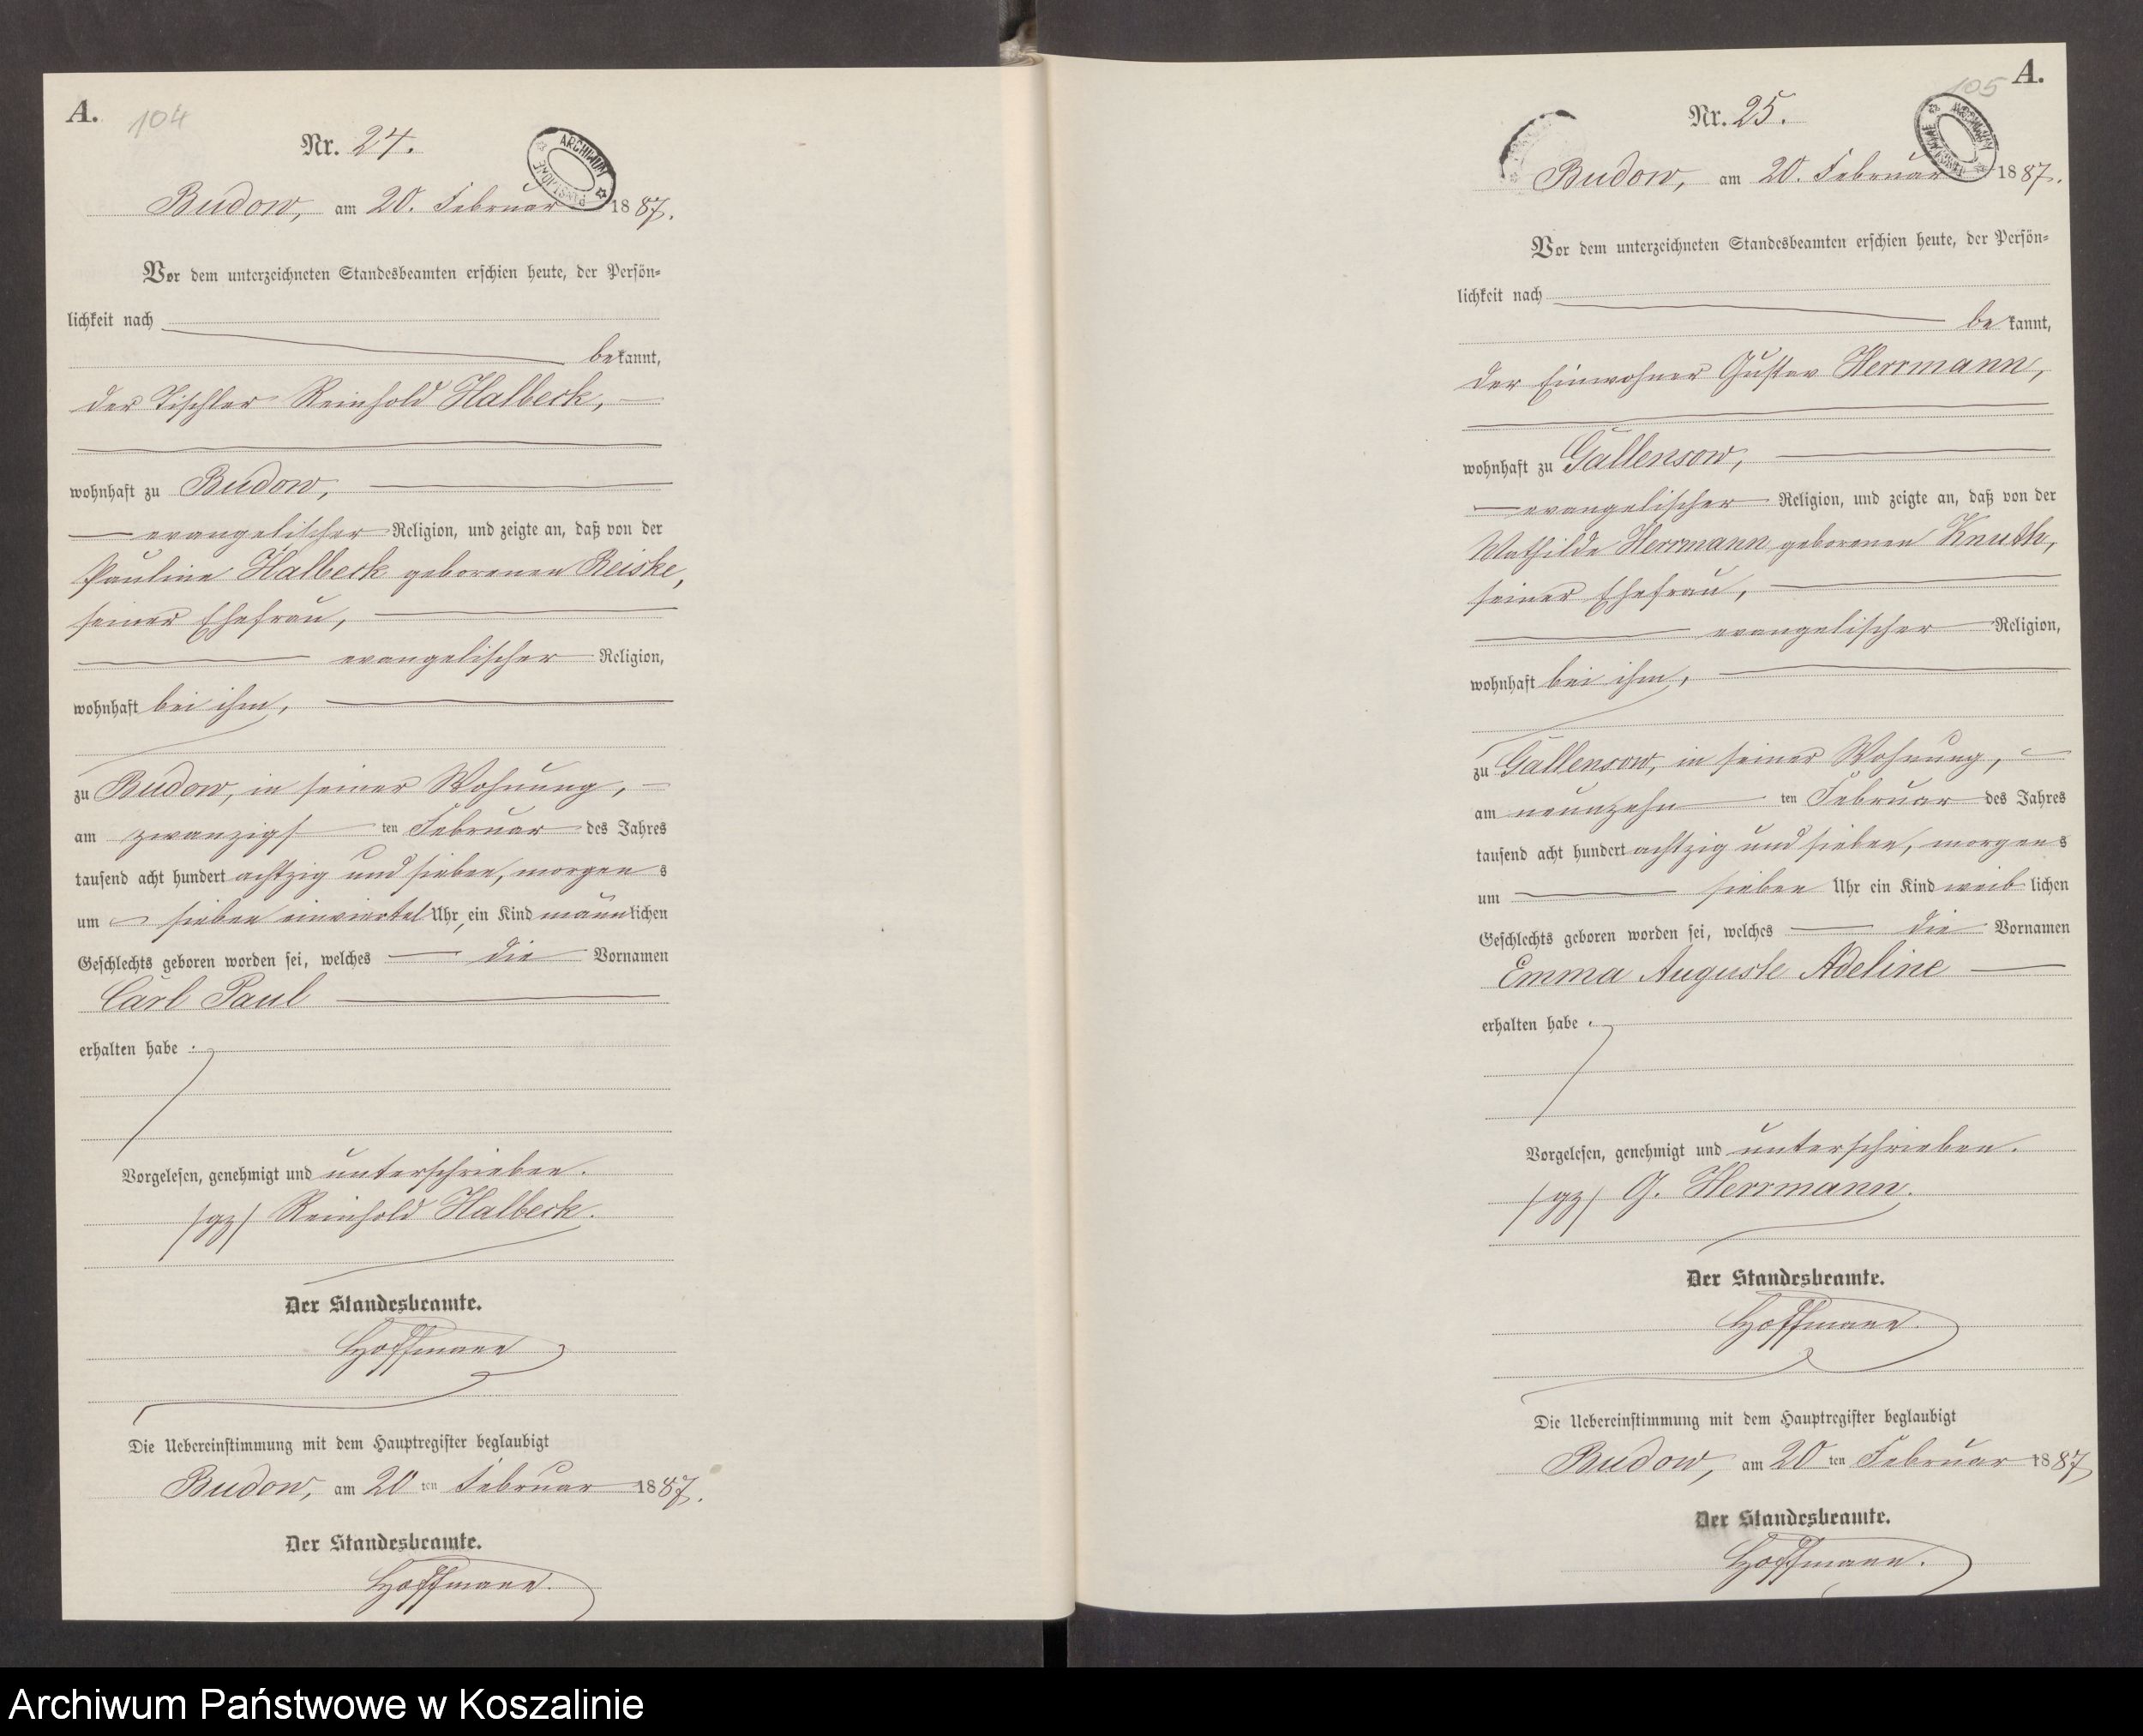 A. 104
Nr. 24.
ARCHIWUM PAŃSTWOWE
Budow, am 20. Februar 1887.
Vor dem unterzeichneten Standesbeamten erschien heute, der Persön-
lichkeit nach
bekannt,
der Tischler Reinhold Halbeck,
wohnhaft zu Budow,
evangelischer Religion, und zeigte an, daß von der
Pauline Halbeck geborenen Reiske,
seiner Ehefrau,
evangelischer Religion,
wohnhaft bei ihm,
zu Budow, in seiner Wohnung,
am zwanzigsten Februar des Jahres
tausend acht hundert achtzig und sieben, morgens
um sieben einviertel Uhr, ein Kind männlichen
Geschlechts geboren worden sei, welches die Vornamen
Carl Paul
erhalten habe.
Vorgelesen, genehmigt und unterschrieben.
/gz/ Reinhold Halbeck.
Der Standesbeamte.
Hoffmann
Die Uebereinstimmung mit dem Hauptregister beglaubigt
Budow, am 20ten Februar 1887.
Der Standesbeamte.
Hoffmann.
105 A.
Nr. 25.
ARCHIWUM PAŃSTWOWE
Budow, am 20. Februar 1887.
Vor dem unterzeichneten Standesbeamten erschien heute, der Persön-
lichkeit nach
bekannt,
der Einwohner Gustav Herrmann,
wohnhaft zu Gallensow,
evangelischer Religion, und zeigte an, daß von der
Mathilde Herrmann geborenen Knuth,
seiner Ehefrau,
evangelischer Religion,
wohnhaft bei ihm,
zu Gallensow, in seiner Wohnung,
am neunzehnten Februar des Jahres
tausend acht hundert achtzig und sieben, morgens
um sieben Uhr ein Kind weiblichen
Geschlechts geboren worden sei, welches die Vornamen
Emma Auguste Adeline
erhalten habe.
Vorgelesen, genehmigt und unterschrieben.
/gz/ G. Herrmann.
Der Standesbeamte.
Hoffmann.
Die Uebereinstimmung mit dem Hauptregister beglaubigt
Budow, am 20ten Februar 1887
Der Standesbeamte.
Hoffmann.
Archiwum Państwowe w Koszalinie